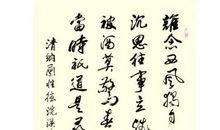 誰念西風獨自
沉思往事立殘
被酒莫驚春
當時祇道是尋
清納蘭性德浣溪